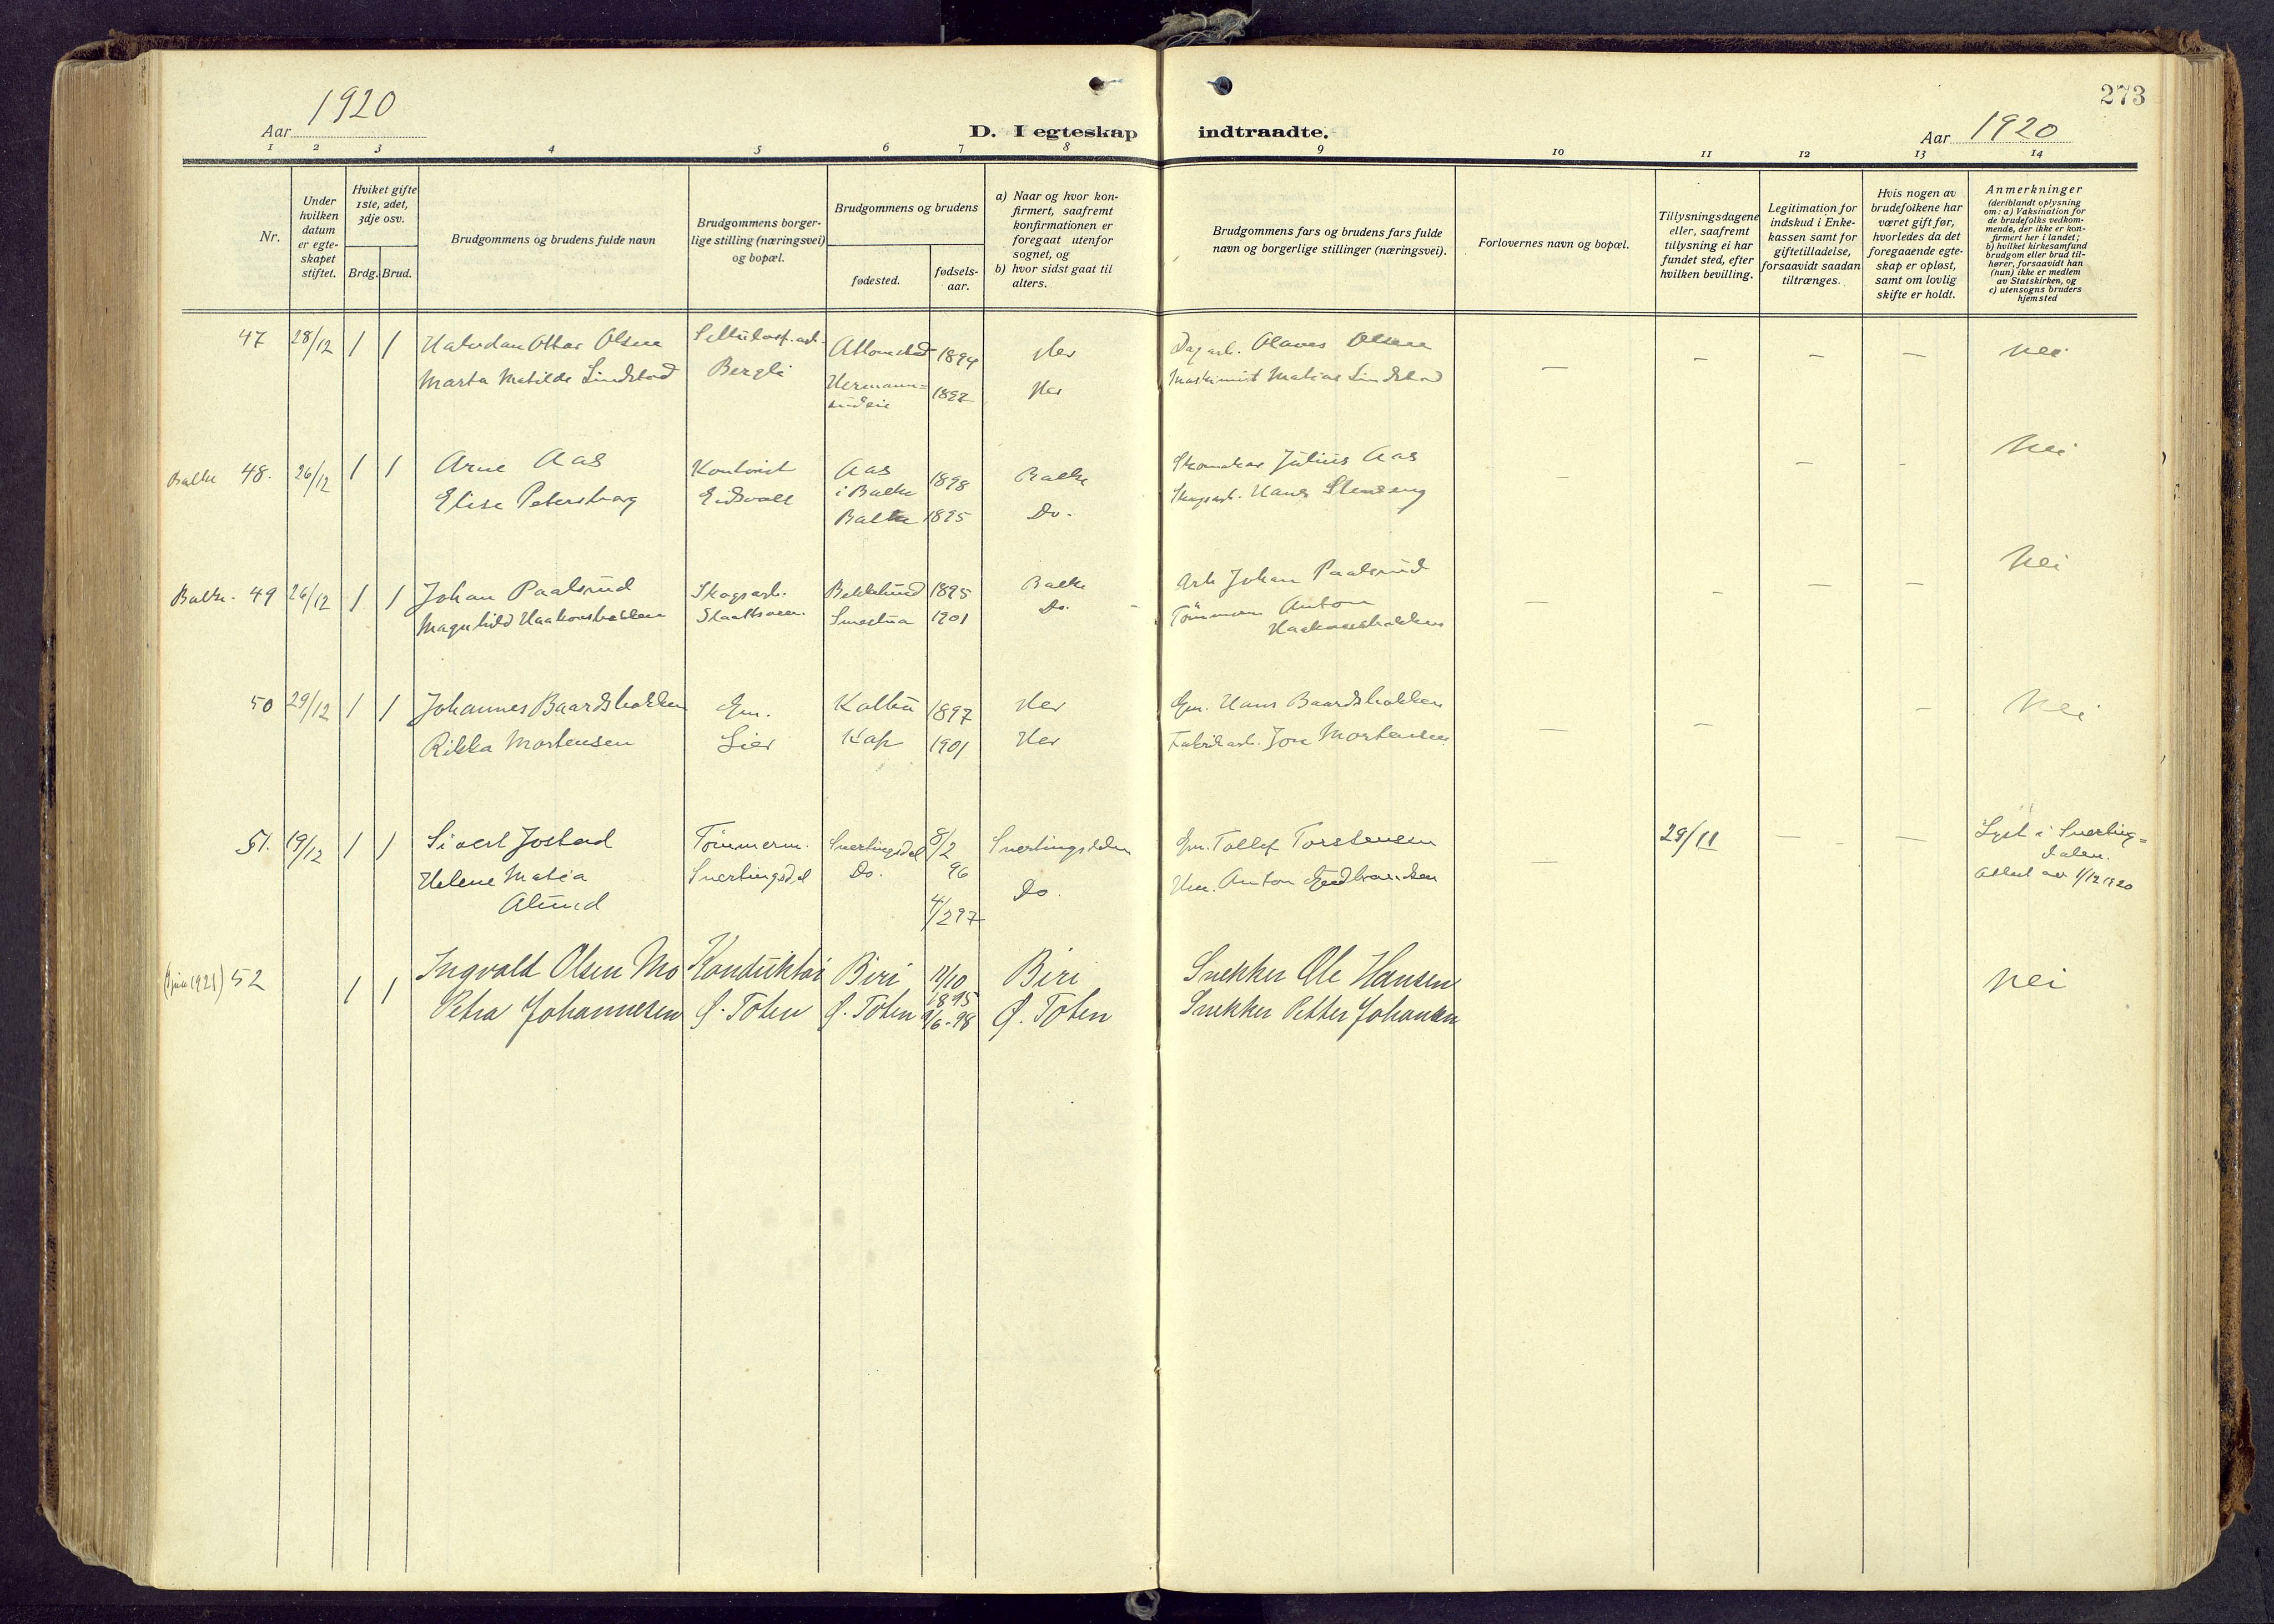 273
Aar 1920
D. I egteskap indtraadte.
Aar 1920
1 2 3 4 5 6 7 8 9 10 11 12 13 14
Nr.
Under
hvilken
datum
er egte-
skapet
stiftet.
Hvilket gifte
1ste, 2det,
3dje osv.
Brdg. Brud.
Brudgommens og brudens fulde navn
Brudgommens borger-
lige stilling (næringsvei)
og bopæl.
Brudgommens og brudens
fødested.
fødsels-
aar.
a) Naar og hvor kon-
firmert, saafremt
konfirmationen er
foregaat utenfor
sognet, og
b) hvor sidst gaat til
alters.
Brudgommens fars og brudens fars fulde
navn og borgerlige stillinger (næringsvei).
Forlovernes navn og bopæl.
Tillysningsdagene
eller, saafremt
tillysning ei har
fundet sted, efter
hvilken bevilling.
Legitimation for
indskud i Enke-
kassen samt for
giftetilladelse,
forsaavidt saadan
tiltrænges.
Hvis nogen av
brudefolkene har
været gift før,
hvorledes da det
foregaaende egte-
skap er opløst,
samt om lovlig
skifte er holdt.
Anmerkninger
(deriblandt oplysning
om: a) Vaksination for
de brudefolks vedkom-
mende, der ikke er kon-
firmert her i landet;
b) hvilket kirkesamfund
brudgom eller brud til-
hører, forsaavidt han
(hun) ikke er medlem
av Statskirken, og
c) utensogns bruders
hjemsted
47 28/12 1 1 Halvdan Ottar Olsen 1894 Her Dagarb. Olaves Olsen — — — — nei
Marta Matilde Lindstad Bergli Hermann= 1897 Her Maskinist Matias Lindstad
Balke 48. 26/12 1 1 Arne Aas Kontorist Aas 1898 Balke Skomaker Julius Aas — — — nei
Elise Petersborg Eidsvold i Balke
Balke 1895 Do. Skogsarb. Hans
Balke. 49 26/12 1 1 Johan Paalsrud Skogsarb. 1895 Balke Arb Johan Paalsrud — — — — nei
Magnhild Haakonsbakken 1901 Do. Tömmerm Anton
Haakonsbakken
50 29/12 1 1 Johannes Baardsbakken Gm. Kolbu 1897 Her Gm. Hans Baardsbakken — — — nei
Rikka Mortensen Lier Kap 1901 Her Fabrikarb. Jon Mortensen
51. 19/12 1 1 Sivert Jostad Tömmerm. Snertingsdal 8/2 96 Snertingsdalen Gm. Tollef Torstensen — 29/11 — — Lyst i Snerting=
dalen.
Helene Matea Snertingsdal Do. Do. Anton
Alund 4/2 97 Attest av 1/12 1920
(1921) 52 1 1 Ingvald Olsen Mo Konduktør Biri 1895 Biri Snekker Ole Hansen nei
Petra Johannesen Ø. Toten Ø. Toten 98 Ø. Toten Snekker Petter Johansen